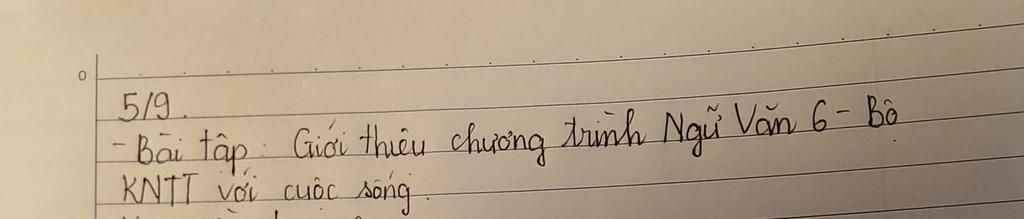 0
5/9.
- Bài tập: Giới thiệu chương trình Ngữ Văn 6 - Bộ
KNTT với cuộc sống.